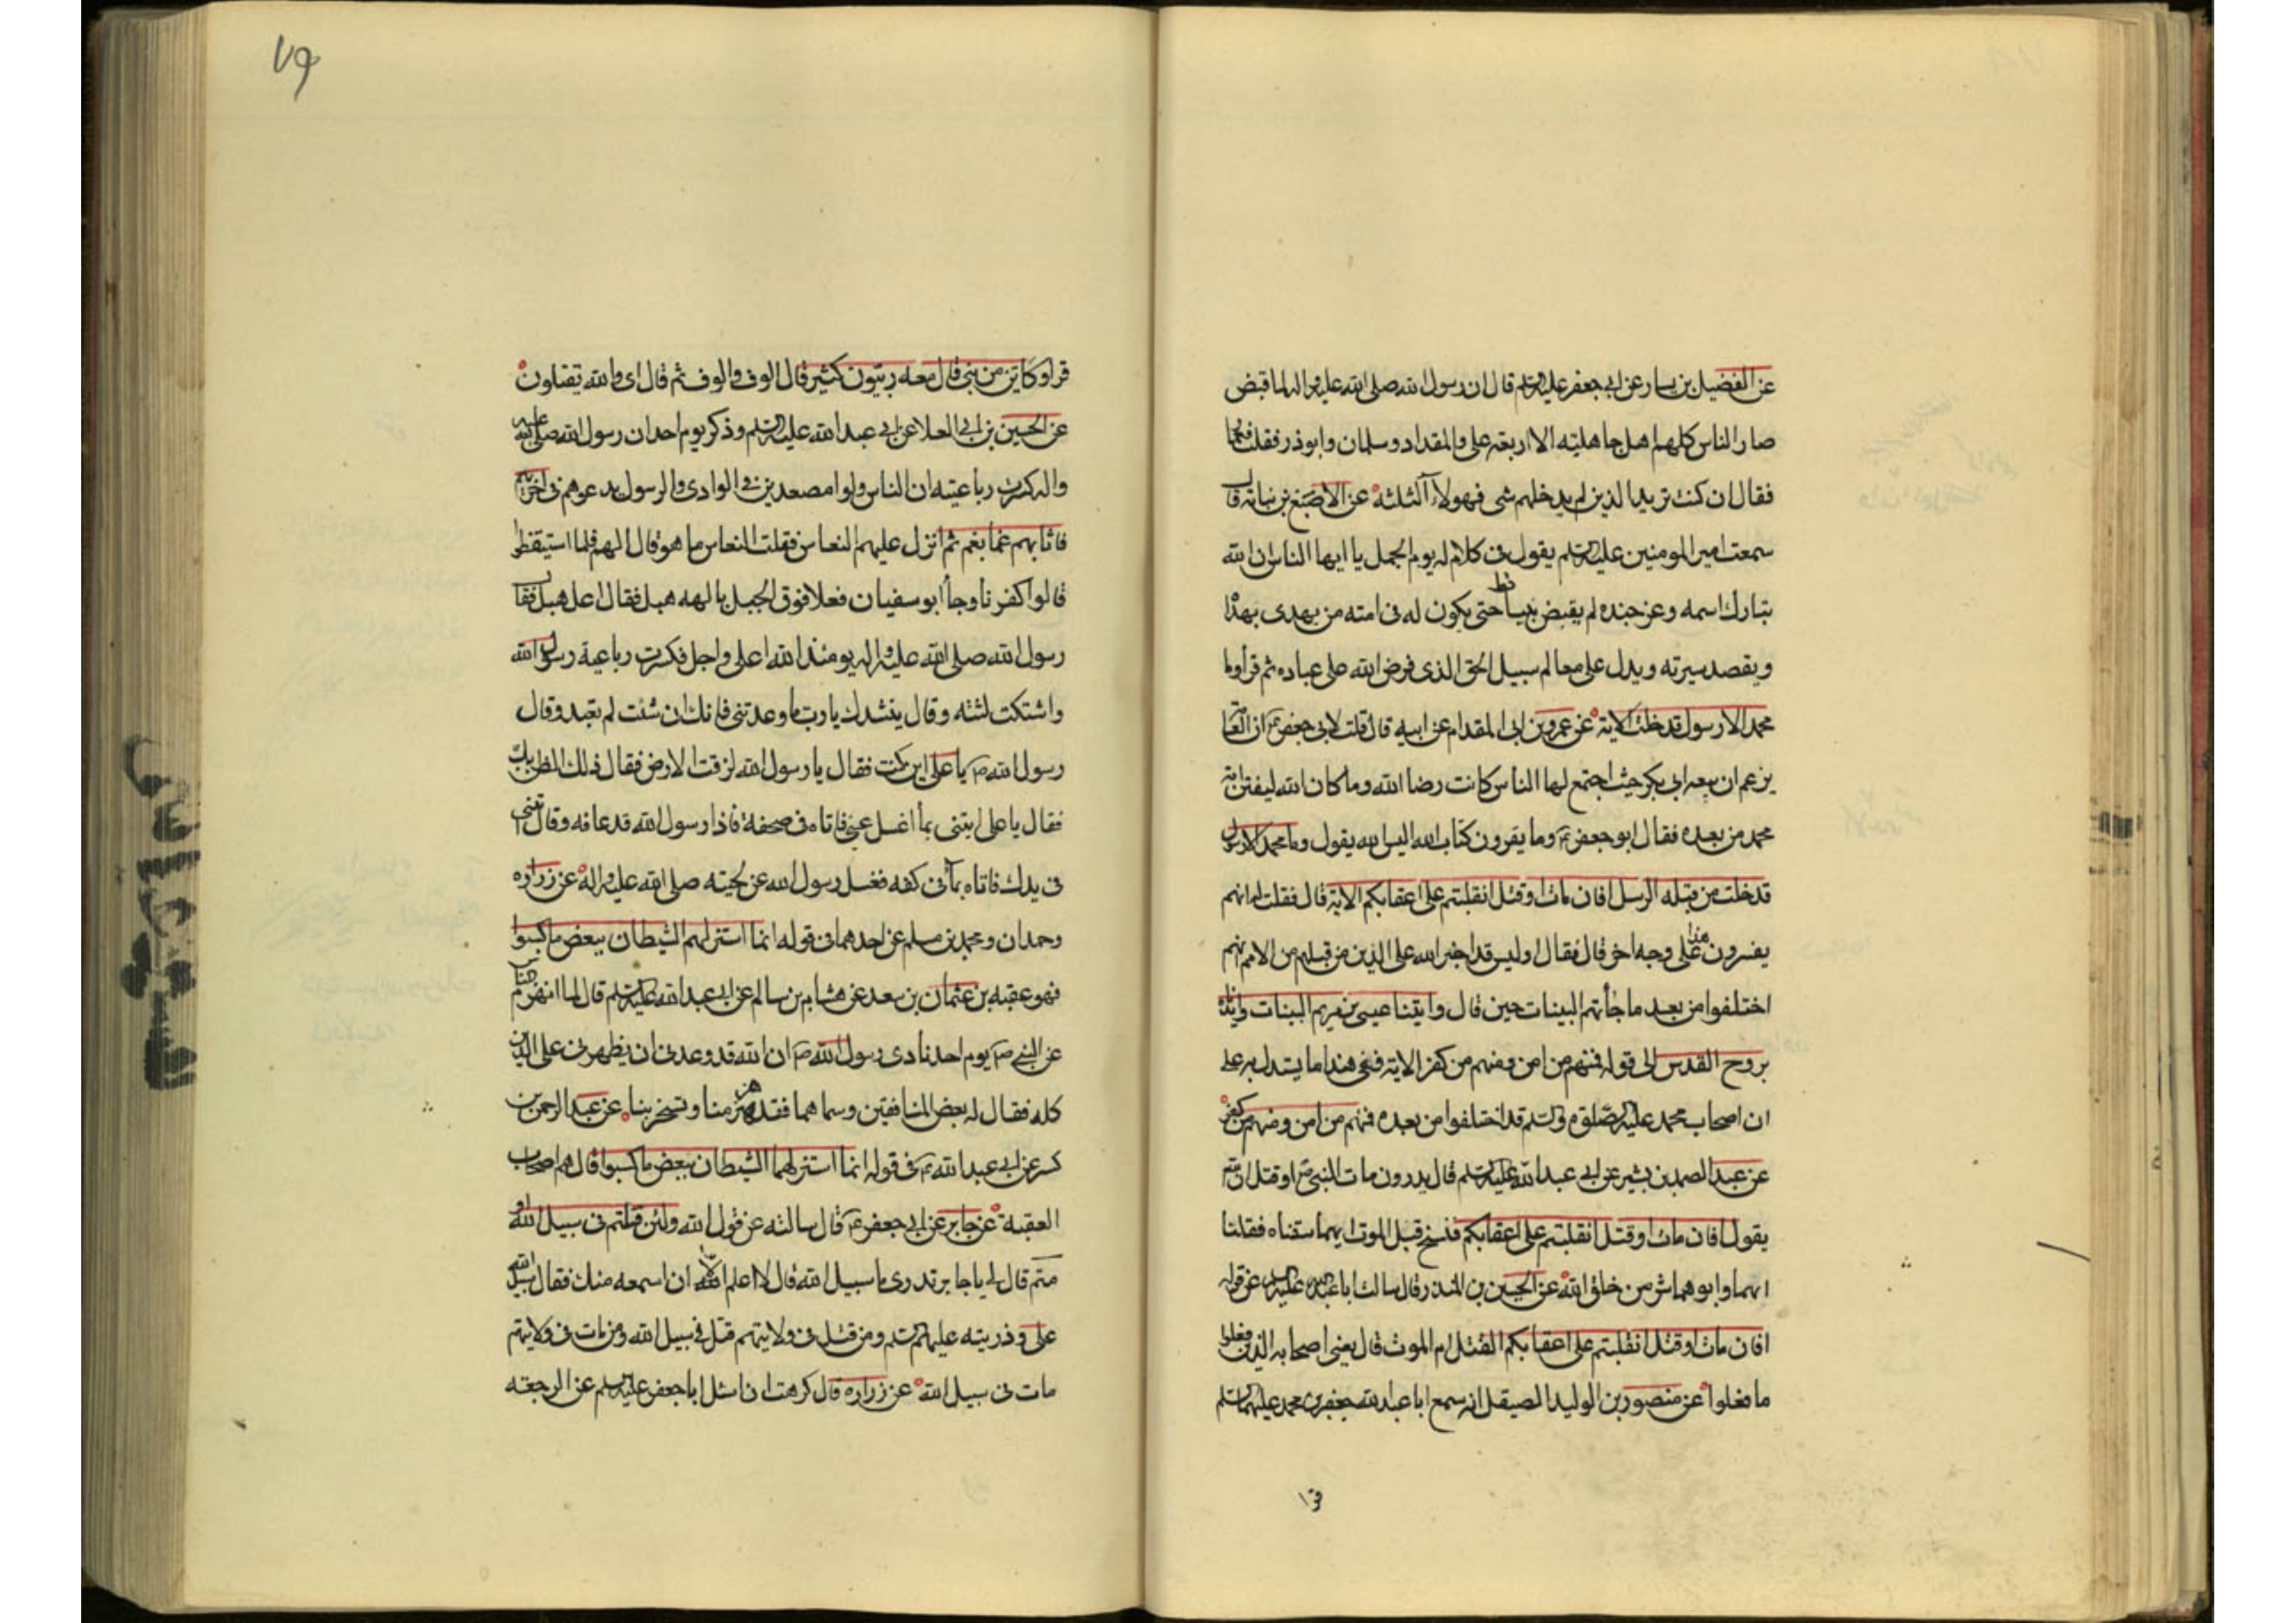 عن الفضيل بن يسار عن ابي جعفر عليه السلم قال ان رسول الله صلى الله عليه واله لما قبض
صار الناس كلهم اهل جاهليه الا اربعة على والمقداد وسلمان وابوذر فقلت فعمار
فقال ان كنت تريد الذين لم يدخلهم شى فهولاء الثلثة عن الاصبغ بن نباتة قال
سمعت امير المومنين عليه السلم يقول فى كلام له يوم الجمل يا ايها الناس ان الله
تبارك اسمه وعز جنده لم يقبض نبيا قط حتى يكون له فى امته من يهدى بهداه
ويقصد سيرته ويدل على معالم سبيل الحق الذى فرض الله على عباده ثم قرأ وما
محمد الا رسول قد خلت الاية عن عمرو بن ابى المقدام عن ابيه قال قلت لابى جعفر ع ان العامة
يزعم ان بيعه ابى بكر حيث اجتمع لها الناس كانت رضا الله وما كان الله ليفتن امة
محمد من بعده فقال ابو جعفر ع وما يقرون كتاب الله اليس الله يقول وما محمد الا رسول
قد خلت من قبله الرسل افان مات او قتل انقلبتم على اعقابكم الاية قال فقلت له انهم
يفسرون هذا على وجه اخر قال فقال اوليس قد اخبر الله على الذين من قبلهم من الامم انهم
اختلفوا من بعد ما جأتهم البينات حين قال واتينا عيسى بن مريم البينات وايدناه
بروح القدس الى قوله فمنهم من امن ومنهم من كفر الاية ففى هذا ما يستدل به على
ان اصحاب محمد عليه الصلوة والسلم قد اختلفوا من بعده فمنهم من امن ومنهم من كفر
عن عبد الصمد بن بشير عن ابي عبد الله عليه السلم قال يدرون مات النبى ص او قتل ان الله
يقول افان مات او قتل انقلبتم على اعقابكم فسخ قبل الموت ايهما سقتاه فقلنا
ايهما وابوهما شر من خلق الله عن الحسين بن المنذر قال سالت ابا عبد الله عليه السلم عن قوله
افان مات او قتل انقلبتم على اعقابكم القتل ام الموت قال يعنى اصحابه الذين فعلوا
ما فعلوا عن منصور بن الوليد الصيقل انه سمع ابا عبد الله جعفر بن محمد عليهما السلم
قرا
٧٩
قرا وكاين من نبى قال معه ربيون كثير قال الوف والوف ثم قال اى والله تقتلون
عن الحسين بن ابى العلا عن ابى عبد الله عليه السلم وذكر يوم احد ان رسول الله صلى الله عليه
واله كسرت رباعيته ان الناس ولوا مصعدين فى الوادى والرسول يدعوهم فى اخريهم
فاثابهم غما بغم ثم انزل عليهم النعاس فقلت النعاس ما هو قال الهم فلما استيقظوا
قالوا كفرنا وجأ ابو سفيان فعلا فوق الجبل بالهه هبل فقال اعل هبل فقال
رسول الله صلى الله عليه واله يومئذ الله اعلى واجل فكسرت رباعية رسول الله
واشتكت لثته وقال ينشدك يا رب ما وعدتنى فانك ان شئت لم تعبد وقال
رسول الله ص يا على اين كنت فقال يا رسول الله لزقت الارض فقال ذلك الظن بك
فقال يا على ايتنى بمأ اغسل عنى فاتاه فى صحفة فاذا رسول الله قد عافه وقال ائتنى
فى يدك فاتاه بمأ فى كفه فغسل رسول الله عن لحيته صلى الله عليه واله عن زراره
وحمدان ومحمد بن مسلم عن احدهما فى قوله انما استزلهم الشيطان ببعض ما كسبوا
فهو عقبه بن عثمان بن سعد عن هشام بن سالم عن ابى عبد الله عليه السلم قال لما انهزم الناس
عن النبى ص يوم احد نادى رسول الله ص ان الله قد وعدنى ان يظهرنى على الدين
كله فقال له بعض المنافقين وسماهما فقد هزمنا وتسخر بنا عن عبد الرحمن بن
كسر عن ابي عبد الله ع فى قوله انما استزلهما الشيطان ببعض ما كسبوا قال هم اصحاب
العقبة عن جابر عن ابى جعفر ع قال سالته عن قول الله ولئن قتلتم فى سبيل الله او
متم قال لى يا جابر تدرى ما سبيل الله قال لا اعلم الا ان اسمعه منك فقال سبيل الله
على وذريته عليهم السلم ومن قتل فى ولايتهم قتل فى سبيل الله ومن مات فى ولايتهم
مات فى سبيل الله عن زراره قال كرهت ان اسئل ابا جعفر عليه السلم عن الرجعة